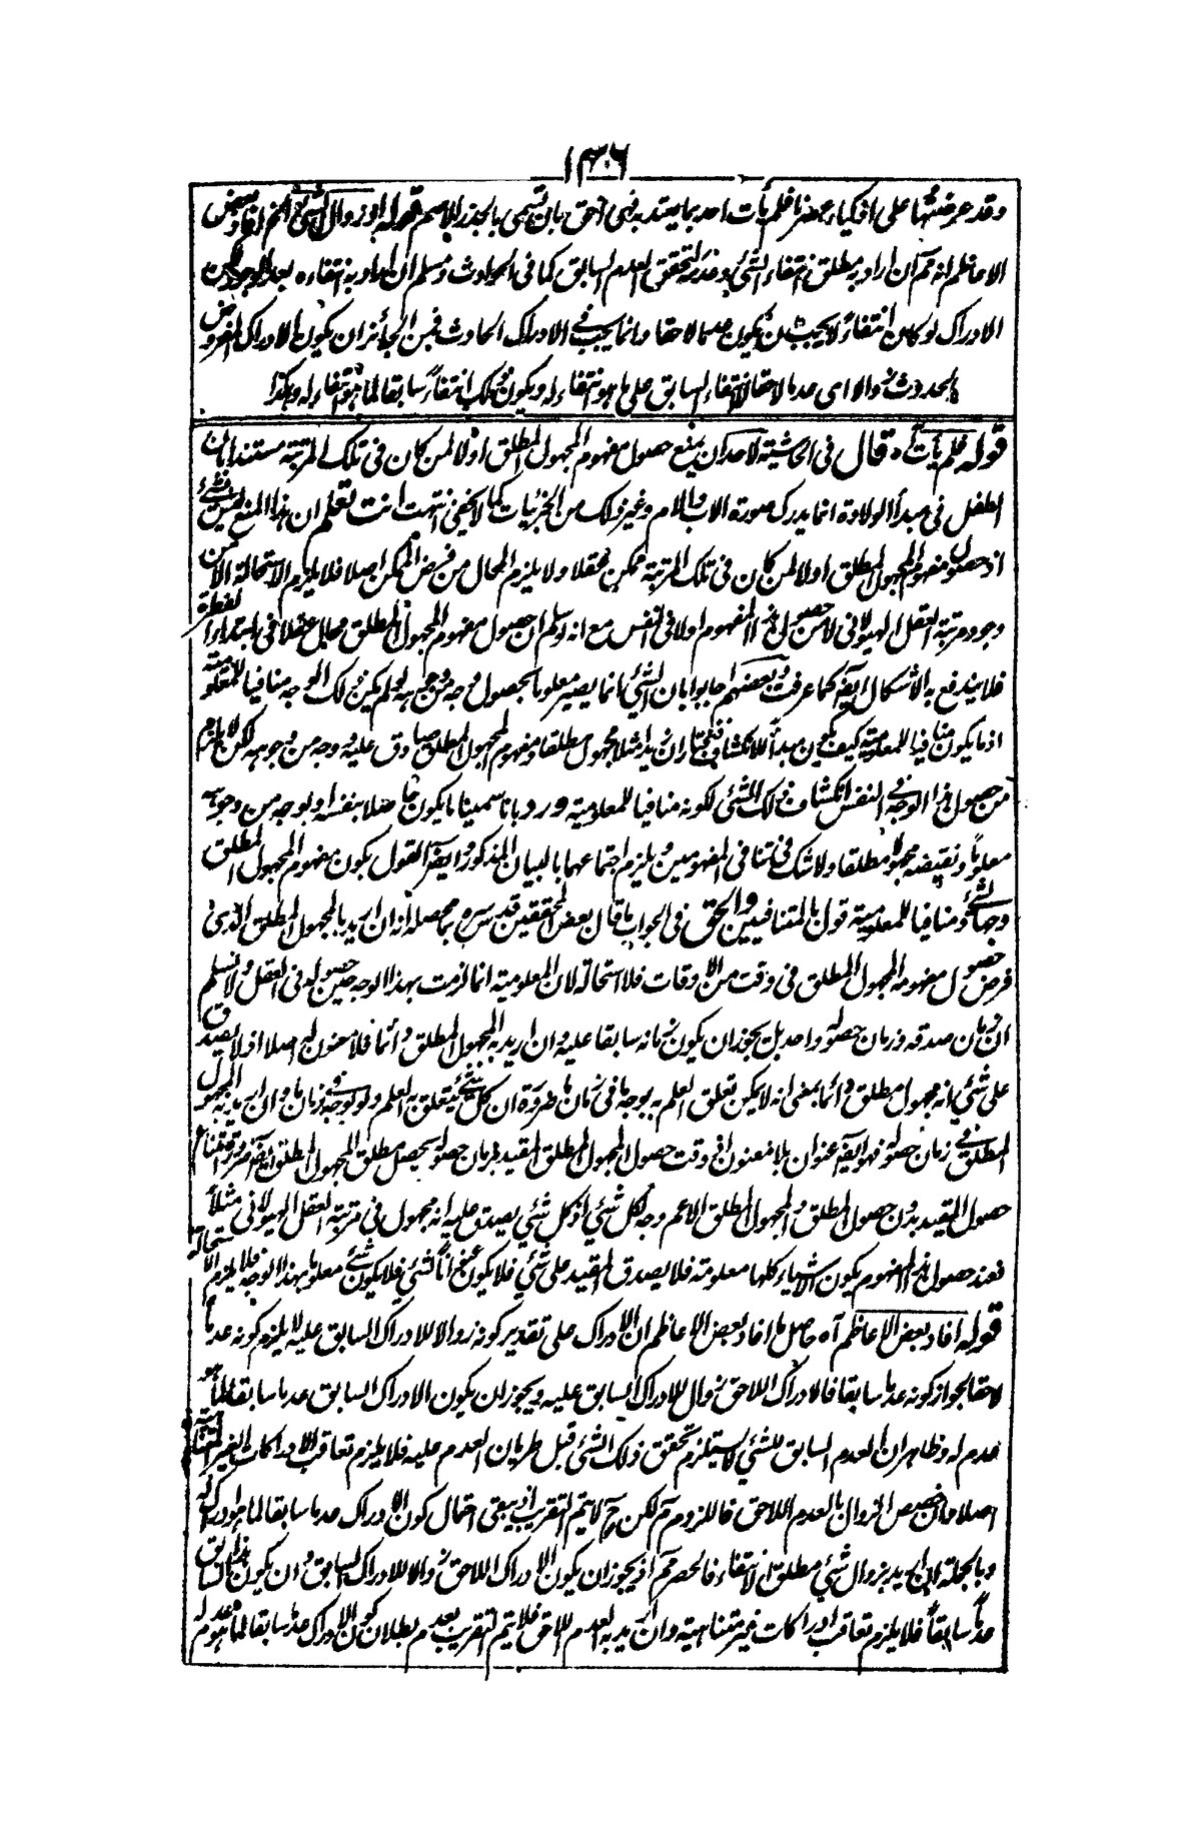 ١٣٠٦
وقد عرضتها على اذكياء عصرنا فلم يأت احد بما يعتد به فهى احق بان تسمى بالجذر الاصم قوله او زوال الشئ الخ افاد بعض
الاعاظم انه تم ان اراد به مطلق انتفاء الشئ وقد تحقق العدم السابق كما فى الحوادث ومسلم ان اراد به انتفاءه بعد الوجود لكن
الادراك لو كان انتفاءً لا يجب ان يكون عدما لاحقا وانما يجب فى الادراك الحادث فمن الجائز ان يكون الادراك المفروض
الحدوث زوالا اى عدما لاحقا لانتفاء السابق على ما هو انتفاء له ويكون ذلك انتفاءً سابقا لما هو انتفاء له وهكذا
قوله فلم يأت اه قال فى الحاشية لاحد ان يمنع حصول مفهوم المجهول المطلق اولا لمن كان فى تلك المرتبة مستندا بان
الطفل فى مبدأ الولادة انما يدرك صورة الاب والام وغير ذلك من الجزئيات كما لا يخفى انتهت انت تعلم ان هذا المنع ليس بشئ
اذ حصول مفهوم المجهول المطلق اولا لمن كان فى تلك المرتبة ممكن عقلا ولا يلزم المحال من فرض الممكن اصلا فلا يلزم الاستحالة الا من
وجود مرتبة العقل الهيولانى لا من حصول هذا المفهوم اولا فى النفس مع انه لو سلم ان حصول مفهوم المجهول المطلق محال عقلا فى ابتداء الفطرة
فلا يندفع به الاشكال ايضا كما عرفت وبعضهم اجابوا بان الشئ انما يصير معلوما بحصول وجه من وجوهه لو لم يكن ذلك الوجه منافيا للمعلومية
اذ ما يكون منافيا للمعلومية كيف يكون مبدأ للانكشاف فنختار ان زيدا مثلا مجهول مطلقا ومفهوم المجهول المطلق صادق عليه وجه من وجوهه لكن لا يلزم
من حصول هذا الوجه فى النفس انكشاف ذلك الشئ لكونه منافيا للمعلومية ورد بانا سمينا ما يكون حاصلا بنفسه او بوجه من وجوهه
معلوما ونقيضه مجهولا مطلقا ولا شك فى تنافى المفهومين ويلزم اجتماعهما بالبيان المذكور وايضا القول بكون مفهوم المجهول المطلق
وجها لشئ ومنافيا للمعلومية قول بالمتنافيين والحق فى الجواب ما قال بعض المحققين قدس سره بما محصله انه ان اريد بالمجهول المطلق الذى
فرض حصول مفهومه المجهول المطلق فى وقت من الاوقات فلا استحالة لان المعلومية انما لزمت بهذا الوجه حين حصوله فى العقل ولا نسلم
ان زمان صدقه وزمان حصوله واحد بل يجوز ان يكون زمانه سابقا عليه وان اريد به المجهول المطلق دائما فلا معنون له اصلا اذ لا يصدق
على شئ انه مجهول مطلق دائما بمعنى انه لا يمكن تعلق العلم به بوجه ما فى زمان ما ضرورة ان كل شئ يتعلق به العلم ولو بوجه فى زمان ما وان اريد به المجهول
المطلق فى زمان حصوله فهو ايضا عنوان بلا معنون اذ وقت حصول المجهول المطلق المقيد بزمان حصوله يحصل مطلق المجهول المطلق ايضا ضرورة امتناع
حصول المقيد بدون حصول المطلق والمجهول المطلق الاعم وجه لكل شئ اذ كل شئ يصدق عليه انه مجهول فى مرتبة العقل الهيولانى مثلا
فعند حصول هذا المفهوم يكون الاشياء كلها معلومة فلا يصدق المقيد على شئ فلا يكون عنوانا لشئ فلا يكون شئ معلوما بهذا الوجه فلا يلزم الاستحالة
قوله افاد بعض الاعاظم آه حاصل ما افاد بعض الاعاظم ان الادراك على تقدير كونه زوالا للادراك السابق عليه لا يلزم كونه عدما
لاحقا لجواز كونه عدما سابقا فالادراك اللاحق زوال للادراك السابق عليه ويجوز ان يكون الادراك السابق عدما سابقا لما هو
عدم له وظاهر ان العدم السابق للشئ لا يستلزم تحقق ذلك الشئ قبل طريان العدم عليه فلا يلزم تعاقب الادراكات الغير المتناهية
اصلا وان خصص الزوال بالعدم اللاحق فاللزوم تم لكن ح لا يتم التقريب اذ يبقى احتمال كون الادراك عدما سابقا لما هو ادراك له
وبالجملة ان اريد بزوال شئ مطلق الانتفاء فالحصر تم اذ يجوز ان يكون الادراك اللاحق زوالا للادراك السابق وان يكون هذا السابق
عدما سابقا فلا يلزم تعاقب ادراكات غير متناهية وان اريد به العدم اللاحق فلا يتم التقريب بعدم بطلان كون الادراك عدما سابقا لما هو عدم له